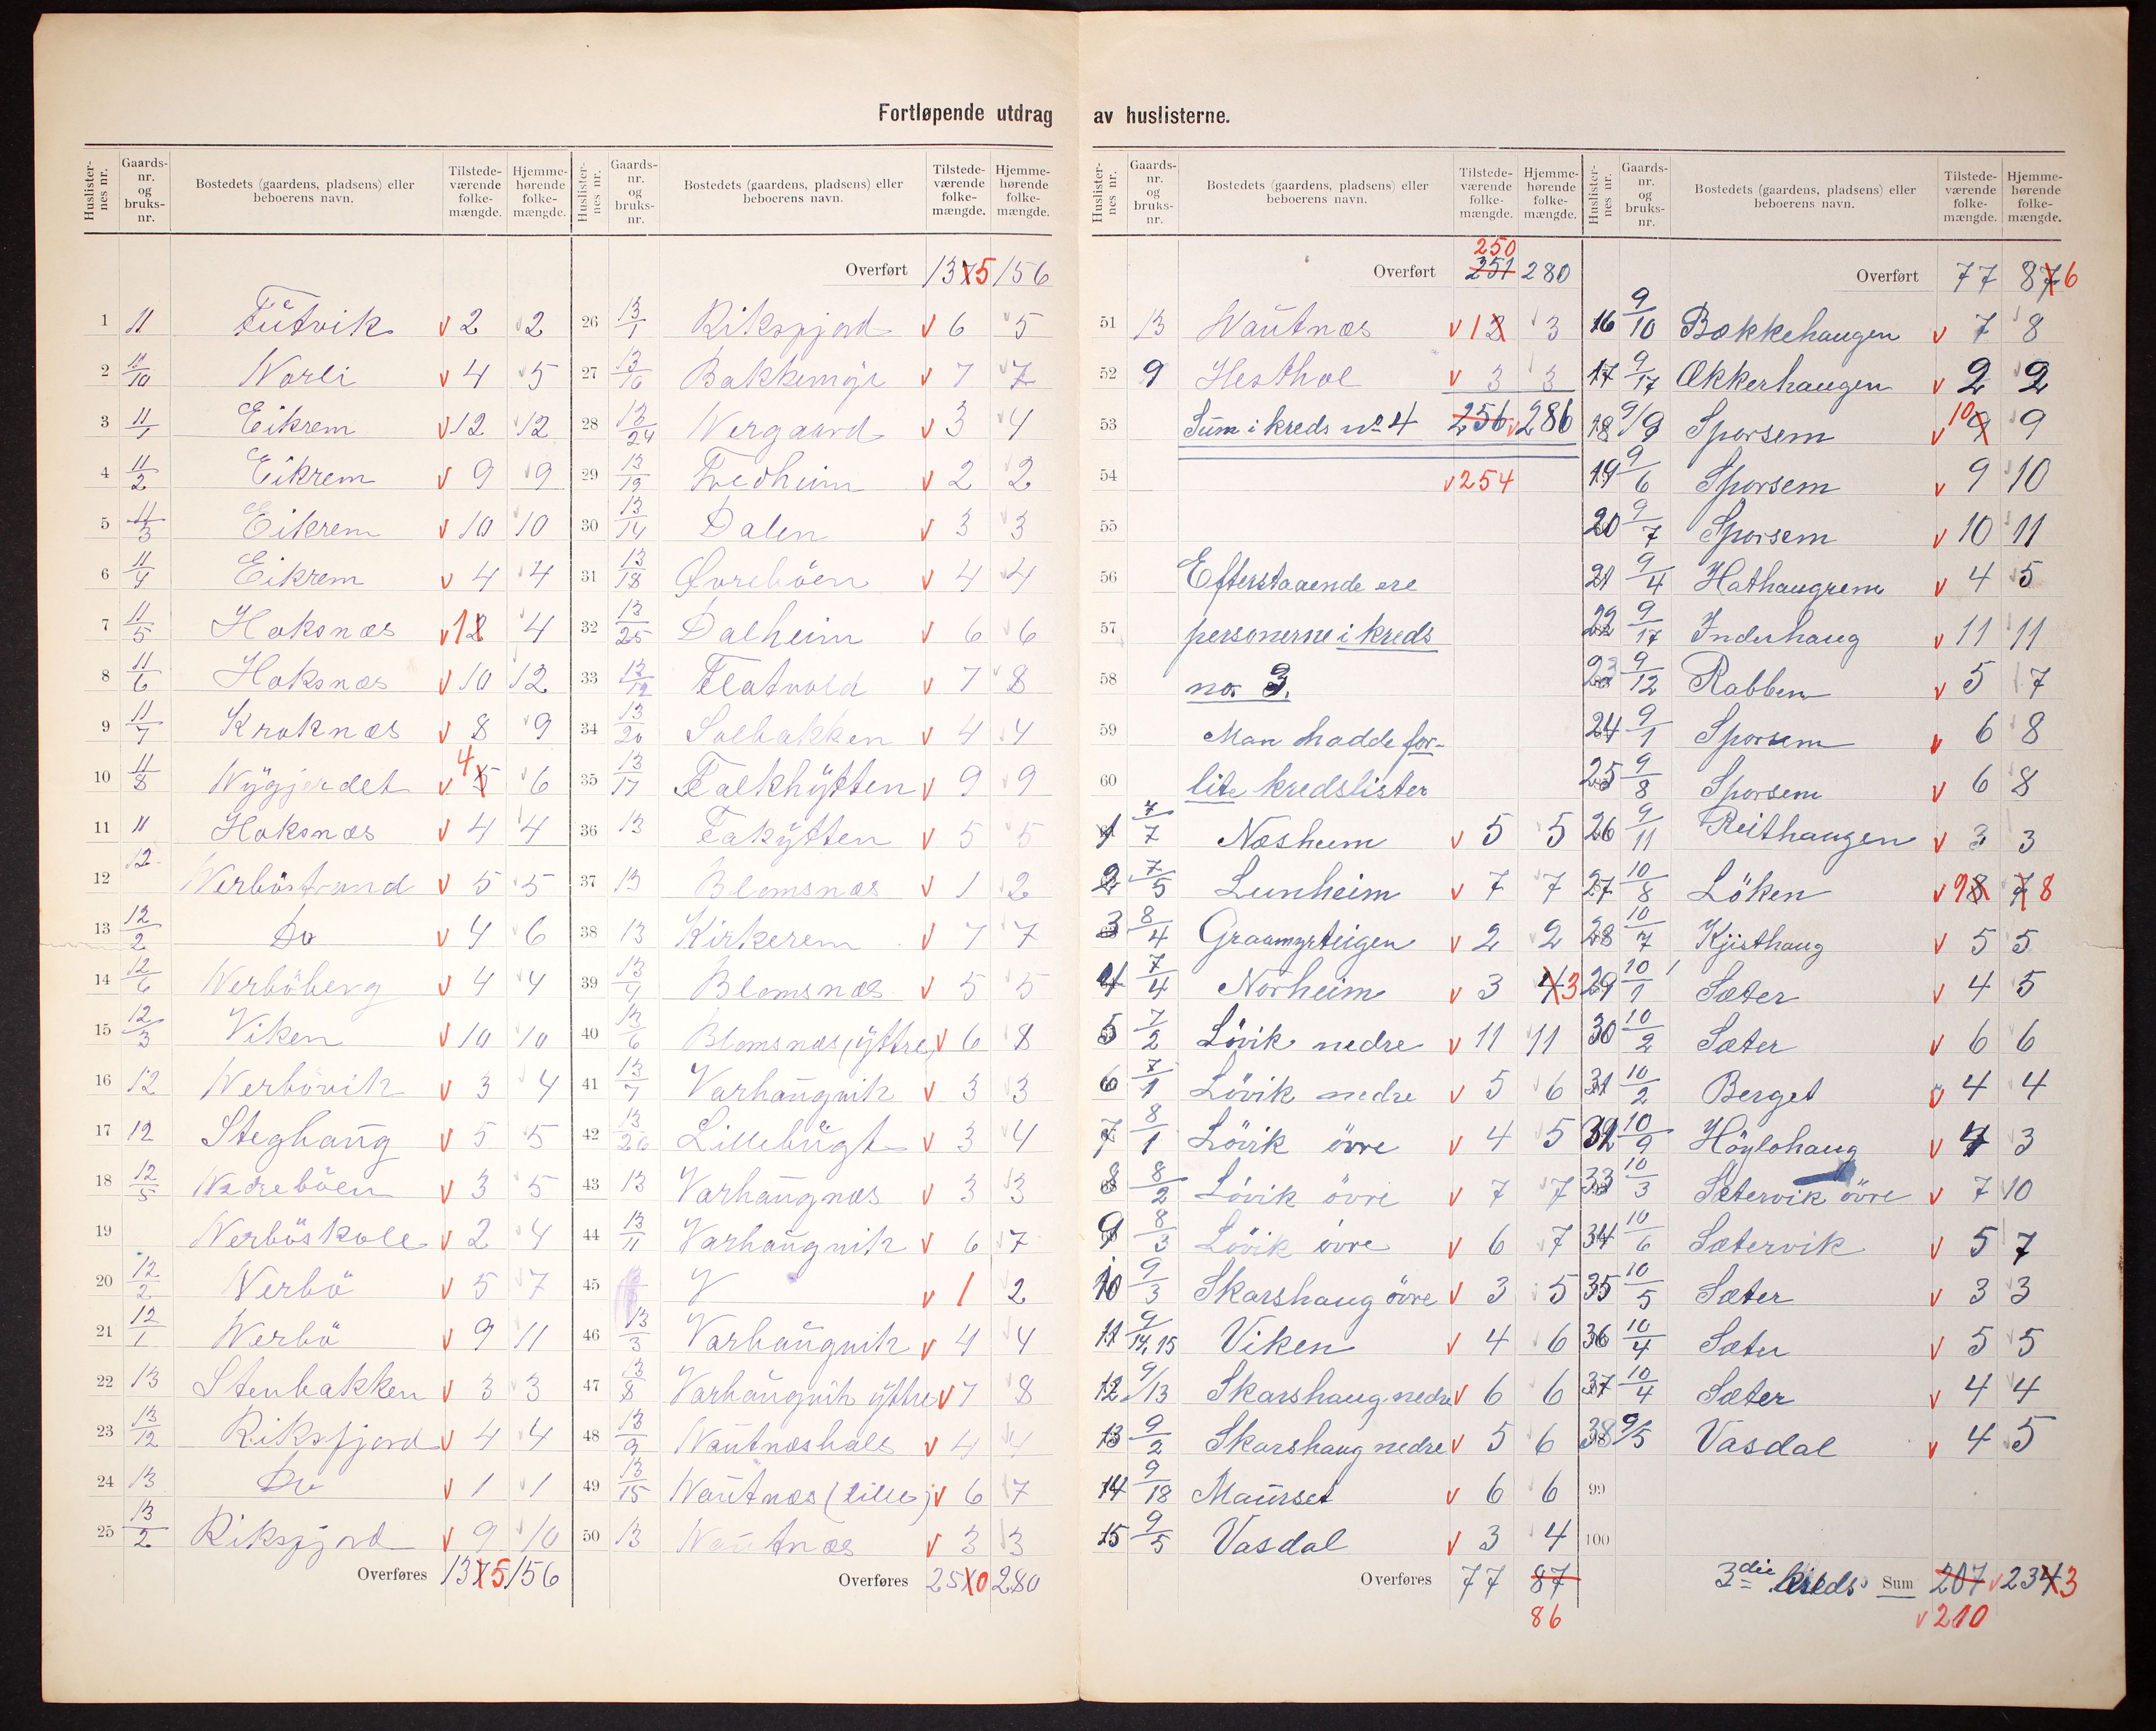 Fortløpende utdrag av huslisterne.
Huslisternes nr. Gaards-nr. og bruks-nr. Bostedets (gaardens, pladsens) eller beboerens navn. Tilstede-værende folke-mængde. Hjemme-hørende folke-mængde.
1 11 Futvik v 2 2
2 11/10 Norli v 4 5
3 11/1 Eikrem v 12 12
4 11/2 Eikrem v 9 9
5 11/3 Eikrem v 10 10
6 11/4 Eikrem v 4 4
7 11/5 Hoksnæs v 12 4
8 11/6 Hoksnæs v 10 12
9 11/7 Kroknæs v 8 9
10 11/8 Nygjerdet v 5 4 6
11 11 Hoksnæs v 4 4
12 12 Nerböstrand v 5 5
13 12/2 Do v 4 6
14 12/6 Nerböberg v 4 4
15 12/3 Viken v 10 10
16 12 Nerbövik v 3 4
17 12 Steghaug v 5 5
18 12/5 Nedreböen v 3 5
19 Nerböskole v 2 4
20 12/2 Nerbö v 5 7
21 12/1 Nerbö v 9 11
22 13 Stenbakken v 3 3
23 13/12 Riksfjord v 4 4
24 13 Do v 1 1
25 13/2 Riksfjord v 9 10
Overføres 137 5 156
Huslisternes nr. Gaards-nr. og bruks-nr. Bostedets (gaardens, pladsens) eller beboerens navn. Tilstede-værende folke-mængde. Hjemme-hørende folke-mængde.
Overført 137 5 156
26 13/1 Riksfjord v 6 5
27 13/16 Bakkemyr v 7 7
28 13/24 Nergaard v 3 4
29 13/19 Fredheim v 2 2
30 13/14 Dalen v 3 3
31 13/18 Øvreböen v 4 4
32 13/25 Dalheim v 6 6
33 13/12 Flatvold v 7 8
34 13/20 Solbakken v 4 4
35 13/17 Falkhytten v 9 9
36 13 Fakytten v 5 5
37 13 Blomsnæs v 1 2
38 13 Kirkerem v 7 7
39 13/4 Blomsnæs v 5 5
40 13/6 Blomsnæs, yttre, v 6 8
41 13/7 Varhaugvik v 3 3
42 13/26 Lillebugt v 3 4
43 13 Varhaugnæs v 3 3
44 13/11 Varhaugvik v 6 7
45 v 1 2
46 13/3 Varhaugvik v 4 4
47 13/8 Varhaugvik yttre v 7 8
48 13/9 Nautneshals v 4 4
49 13/15 Nautnæs (lille) v 6 7
50 13 Nautnæs v 3 3
Overføres 251 0 280
Huslisternes nr. Gaards-nr. og bruks-nr. Bostedets (gaardens, pladsens) eller beboerens navn. Tilstede-værende folke-mængde. Hjemme-hørende folke-mængde.
250
Overført 251 280
51 13 Nautnæs v 12 3
52 9 Hesthol v 3 3
53 Sum i kreds no 4 256 v 286
54 v 254
55
56 Efterstaaende ere
57 personerne i kreds
58 no. 3.
59 Man hadde for-
60 lite kredslister
1 7/7 Næsheim v 5 5
2 7/5 Lunheim v 7 7
3 8/4 Graamyrteigen v 2 2
4 7/4 Norheim v 3 4 3
5 7/2 Lövik nedre v 11 11
6 7/1 Lövik nedre v 5 6
7 8/1 Lövik övre v 4 5
8 8/2 Lövik övre v 7 7
9 8/3 Lövik övre v 6 7
10 9/3 Skarshaug övre v 3 5
11 9/14,15 Viken v 4 6
12 9/13 Skarshaug nedre v 6 6
13 9/2 Skarshaug nedre v 5 6
14 9/18 Maurset v 6 6
15 9/5 Vasdal v 3 4
Overføres 77 87
86
Huslisternes nr. Gaards-nr. og bruks-nr. Bostedets (gaardens, pladsens) eller beboerens navn. Tilstede-værende folke-mængde. Hjemme-hørende folke-mængde.
Overført 77 87 6
16 9/10 Bakkehaugen v 7 8
17 9/17 Ækkerhaugen v 2 2
18 9/9 Sporsem v 10 9 9
19 9/6 Sporsem v 9 10
20 9/7 Sporsem v 10 11
21 9/4 Hathaugrem v 4 5
22 9/17 Inderhaug v 11 11
23 9/12 Rabben v 5 7
24 9/1 Sporsem v 6 8
25 9/8 Sporsem v 6 8
26 9/11 Reithaugen v 3 3
27 10/8 Löken v 9 8 7 8
28 10/7 Kjisthaug v 5 5
29 10/1 Sæter v 4 5
30 10/2 Sæter v 6 6
31 10/2 Berget v 4 4
32 10/9 Höylohaug v 4 3
33 10/3 Sætervik övre v 7 10
34 10/6 Sætervik v 5 7
35 10/5 Sæter v 3 3
36 10/4 Sæter v 5 5
37 10/4 Sæter v 4 4
38 9/5 Vasdal v 4 5
99
100
3die kreds Sum 207 v 234 3
v 210